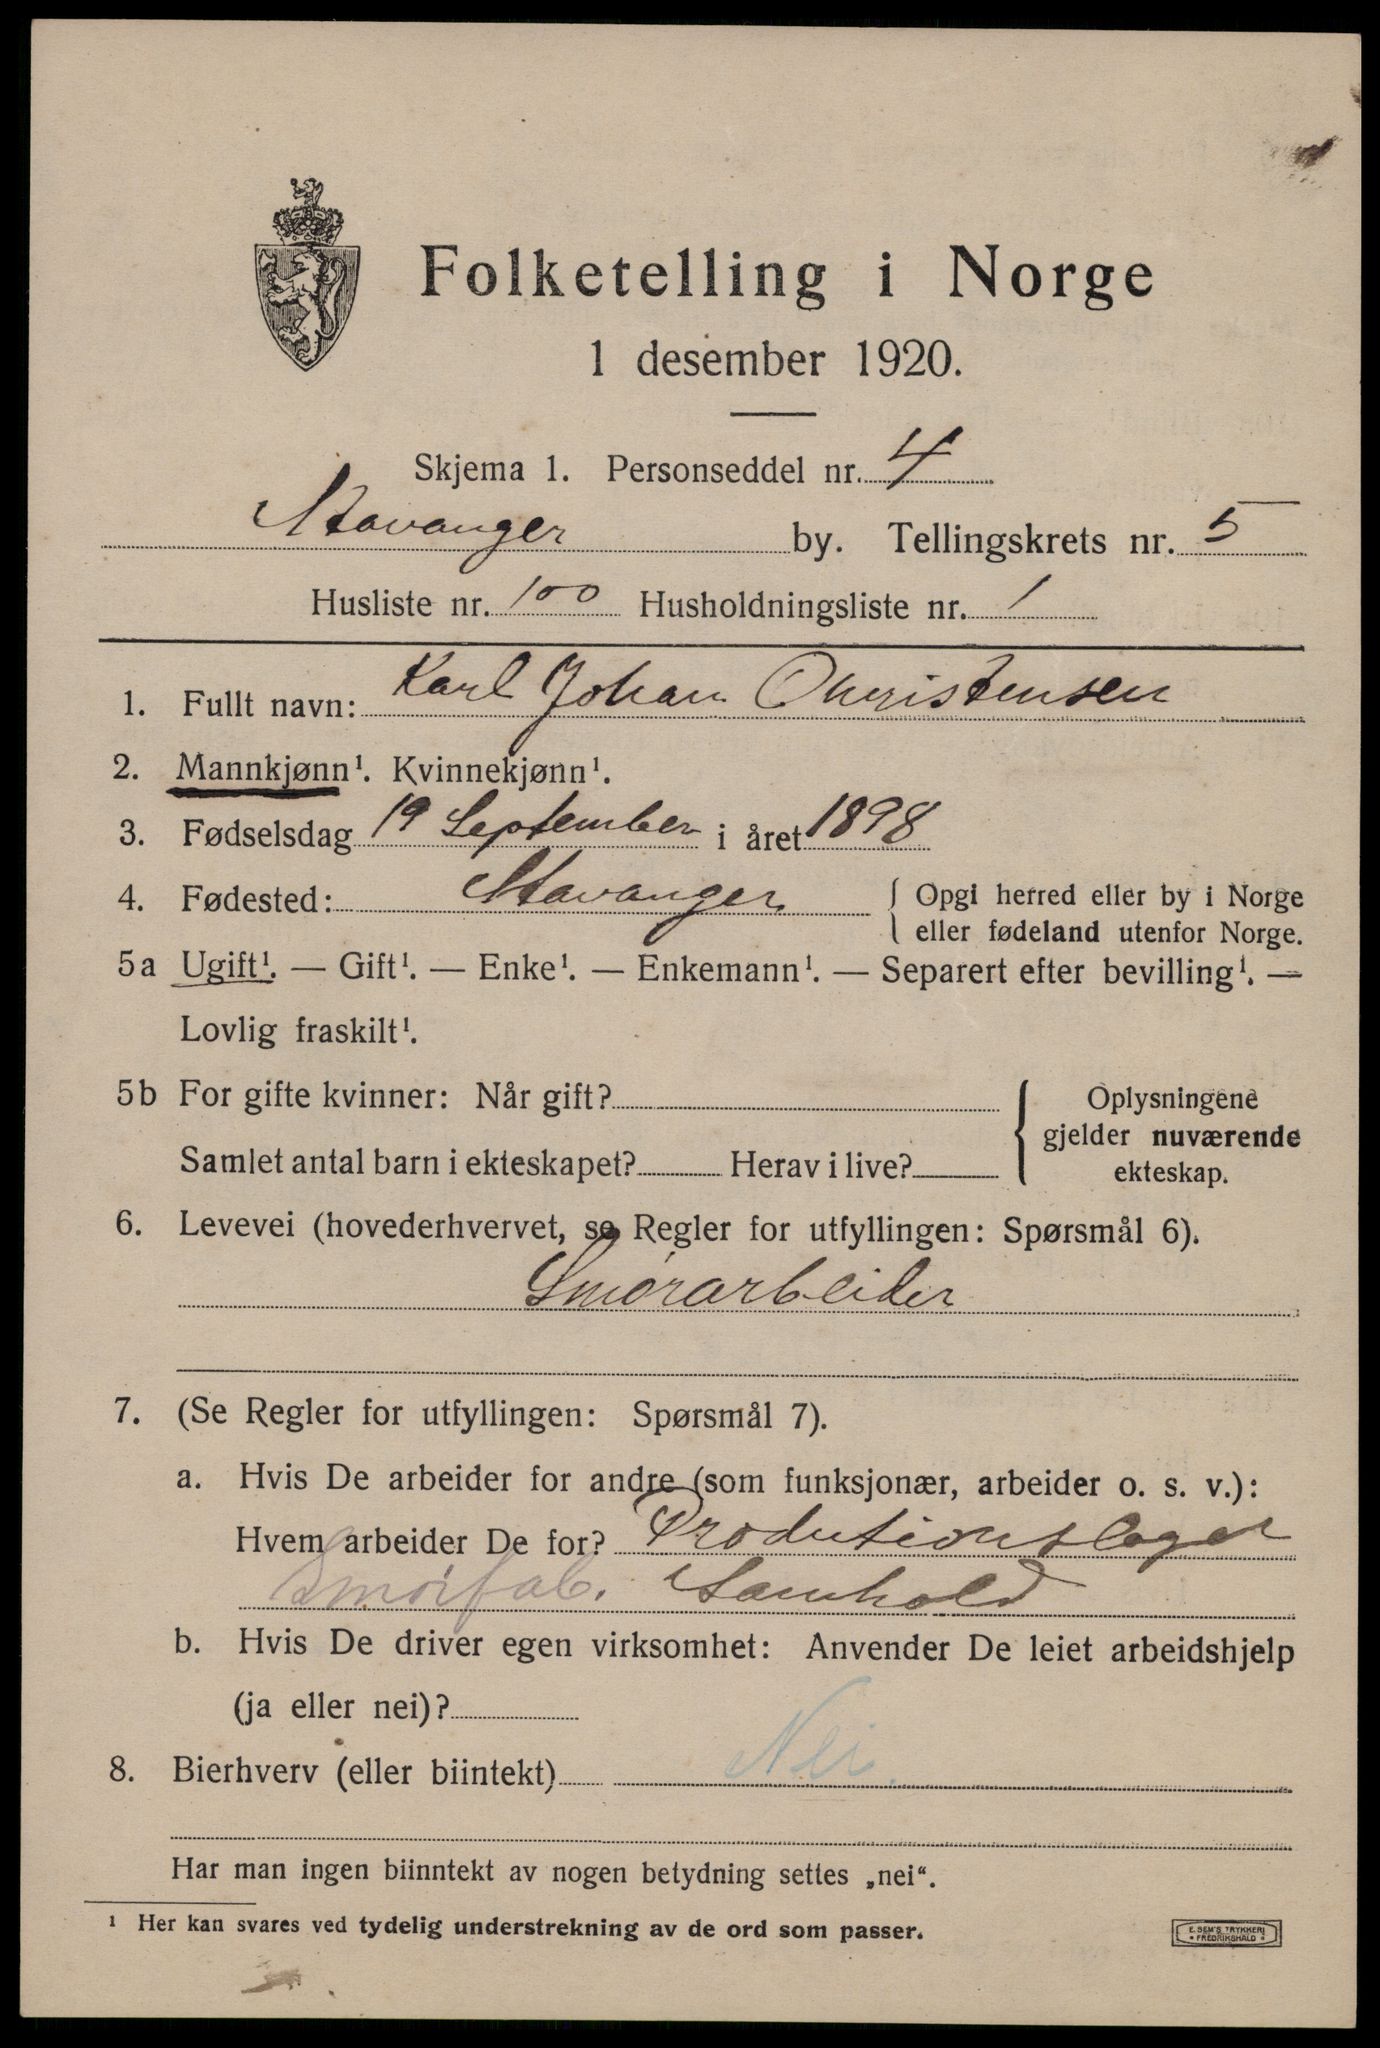 Folketelling i Norge
1 desember 1920.
Skjema 1. Personseddel nr. 4
Stavanger by. Tellingskrets nr. 5
Husliste nr. 100 Husholdningsliste nr. 1
1. Fullt navn: Karl Johan Christensen
2. Mannkjønn¹. Kvinnekjønn¹.
3. Fødselsdag 19 September i året 1898
4. Fødested: Stavanger { Opgi herred eller by i Norge
eller fødeland utenfor Norge.
5a Ugift¹. — Gift¹. — Enke¹. — Enkemann¹. — Separert efter bevilling¹. —
Lovlig fraskilt¹.
5b For gifte kvinner: Når gift? { Oplysningene
gjelder nuværende
Samlet antal barn i ekteskapet? Herav i live? ekteskap.
6. Levevei (hovederhvervet, se Regler for utfyllingen: Spørsmål 6).
Smørarbeider
7. (Se Regler for utfyllingen: Spørsmål 7).
a. Hvis De arbeider for andre (som funksjonær, arbeider o. s. v.):
Hvem arbeider De for? Produtionslaget
Smørfab. Samhold
b. Hvis De driver egen virksomhet: Anvender De leiet arbeidshjelp
(ja eller nei)?
8. Bierhverv (eller biintekt) Nei.
Har man ingen biinntekt av nogen betydning settes „nei“.
¹ Her kan svares ved tydelig understrekning av de ord som passer.
E. SEM'S TRYKKERI
* FREDRIKSHALD *